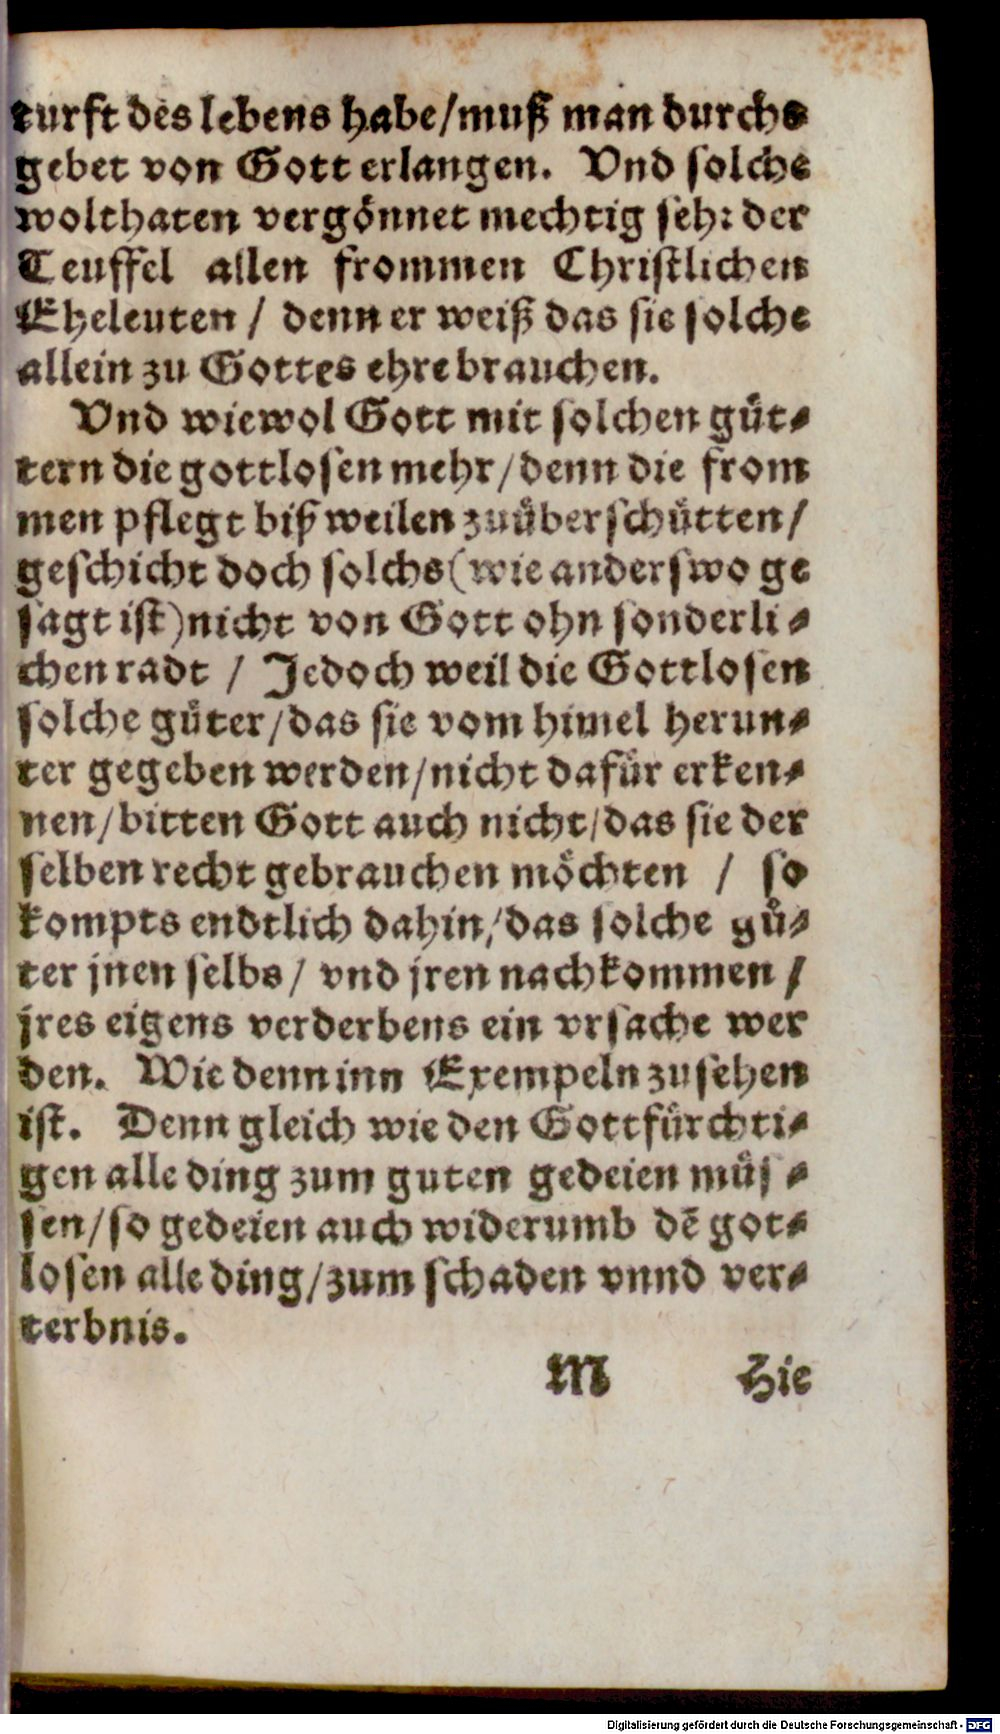 turft des lebens habe/muß man durchs
gebet von Gott erlangen. Vnd solche
wolthaten vergönnet mechtig sehr der
Teuffel allen frommen Christlichen
Eheleuten / denn er weiß das sie solche
allein zu Gottes ehre brauchen.
Vnd wiewol Gott mit solchen güt-
tern die gottlosen mehr/denn die from
men pflegt bißweilen zuüberschütten/
geschicht doch solchs(wie anderswo ge
sagt ist)nicht von Gott ohn sonderli-
chen radt / Jedoch weil die Gottlosen
solche güter/das sie vom himel herun-
ter gegeben werden/nicht dafür erken-
nen/bitten Gott auch nicht/das sie der
selben recht gebrauchen möchten / so
kompts endtlich dahin/das solche gü-
ter jnen selbs/ vnd jren nachkommen/
jres eigens verderbens ein vrsache wer
den. Wie denn inn Exempeln zusehen
ist. Denn gleich wie den Gottfürchti-
gen alle ding zum guten gedeien müs-
sen/so gedeien auch widerumb dē got-
losen alle ding/zum schaden vnnd ver-
terbnis.
M Hie
Digitalisierung gefördert durch die Deutsche Forschungsgemeinschaft - DFG